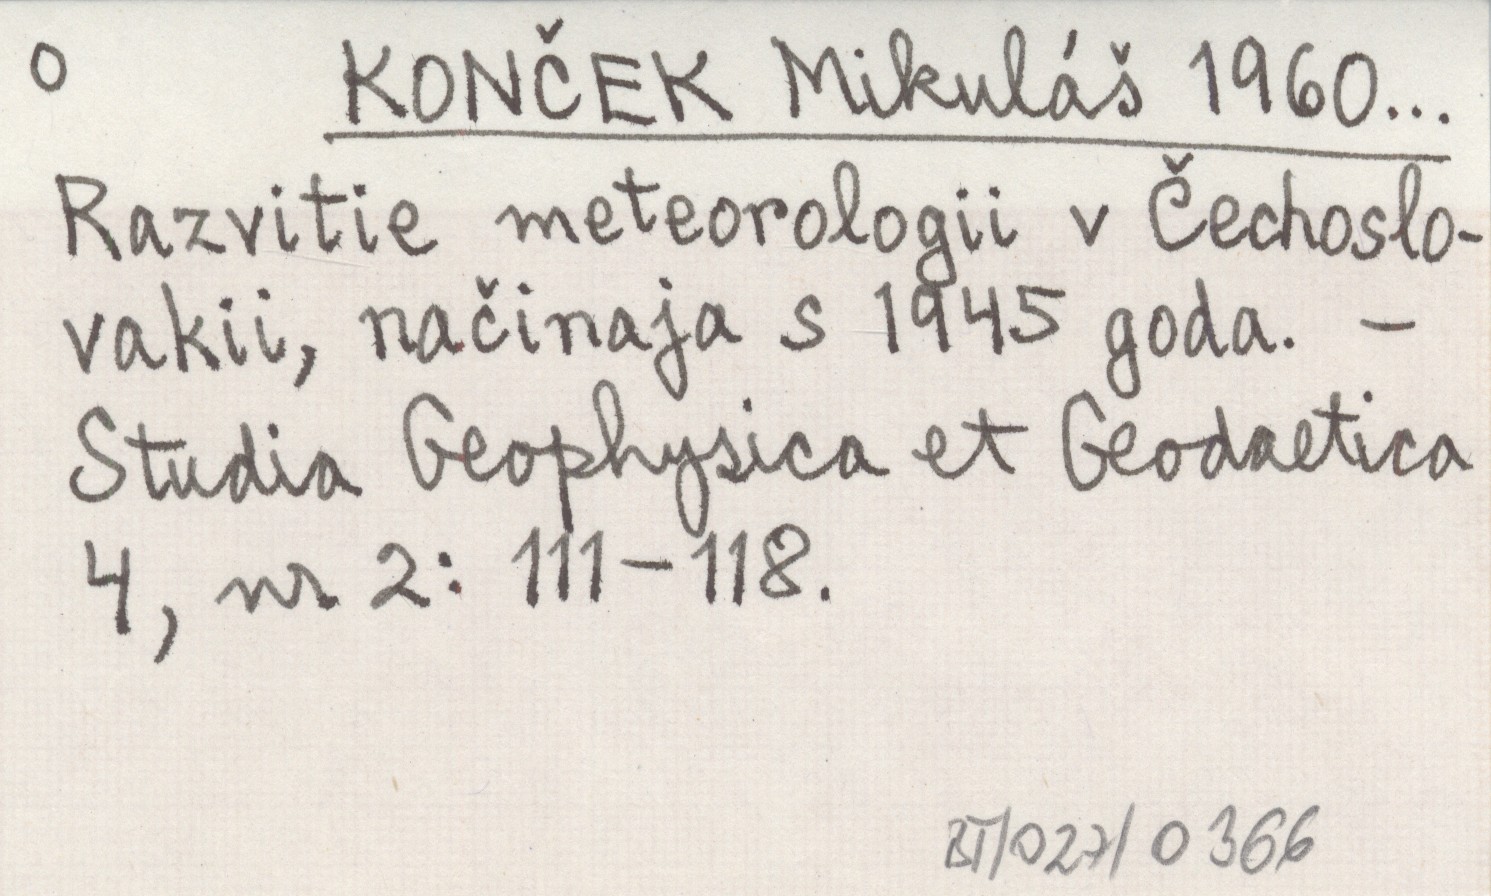 O KONČEK Mikuláš 1960...
Razvitie meteorologii v Čechoslo-
vakii, načinaja s 1945 goda. –
Studia Geophysica et Geodaetica
4, nr 2: 111–118.
BT/027/ 0366